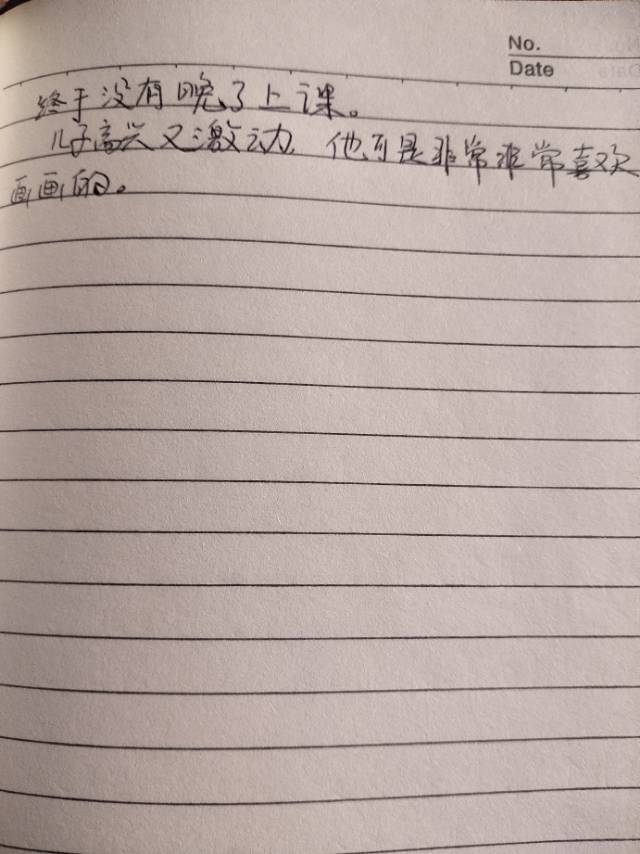 No.
Date
终于没有晚了上课。
儿子高兴又激动，他可是非常非常喜欢
画画的。